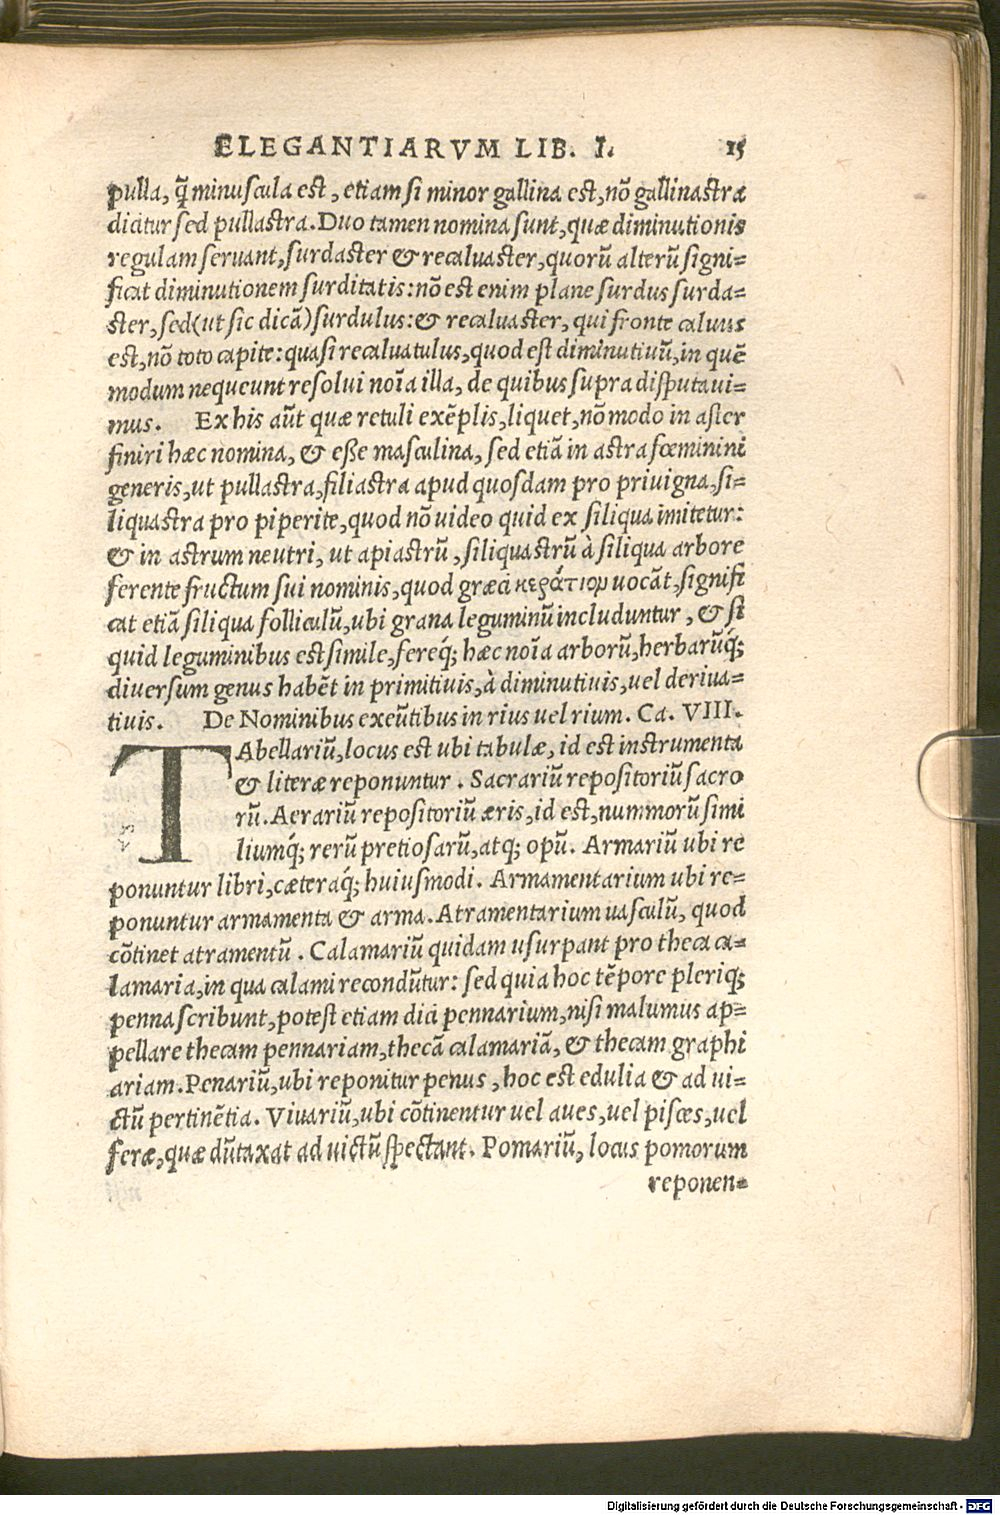 ELEGANTIARVM LIB. I. 15
pulla, q̃ minuscula est, etiam si minor gallina est, nõ gallinastra
dicitur sed pullastra. Duo tamen nomina sunt, quæ diminutionis
regulam servant, surdaster & recaluaster, quorũ alterũ signi=
ficat diminutionem surditatis: nõ est enim plane surdus surda=
ster, sed (ut sic dicã) surdulus: & recaluaster, qui fronte caluus
est, nõ toto capite: quasi recaluatulus, quod est diminutiuũ, in quẽ
modum nequeunt resolui noĩa illa, de quibus supra disputaui=
mus. Ex his aũt quæ retuli exẽplis, liquet, nõ modo in aster
finiri hæc nomina, & esse masculina, sed etiã in astra fœminini
generis, ut pullastra, filiastra apud quosdam pro priuigna, si=
liquastra pro piperite, quod nõ uideo quid ex siliqua imitetur:
& in astrum neutri, ut apiastrũ, siliquastrũ à siliqua arbore
ferente fructum sui nominis, quod græci κεράτιον uocãt, signifi
cat etiã siliqua folliculũ, ubi grana leguminũ includuntur, & si
quid leguminibus est simile, fereq́; hæc noĩa arborũ, herbarũq́;
diuersum genus habẽt in primitiuis, à diminutiuis, uel deriua=
tiuis. De Nominibus exeũtibus in rius uel rium. Ca. VIII.
TAbellariũ, locus est ubi tabulæ, id est instrumenta
& literæ reponuntur. Sacrariũ repositoriũ sacro
rũ. Aerariũ repositoriũ æris, id est, nummorũ simi
liumq́; rerũ pretiosarũ, atq; opũ. Armariũ ubi re
ponuntur libri, cæteraq́; huiusmodi. Armamentarium ubi re=
ponuntur armamenta & arma. Atramentarium uasculũ, quod
cõtinet atramentũ. Calamariũ quidam usurpant pro theca ca=
lamaria, in qua calami recondũtur: sed quia hoc tẽpore pleriq;
penna scribunt, potest etiam dici pennarium, nisi malumus ap=
pellare thecam pennariam, thecã calamariã, & thecam graphi
ariam. Penariũ, ubi reponitur penus, hoc est edulia & ad ui=
ctũ pertinẽtia. Viuariũ, ubi cõtinentur uel aues, uel pisces, uel
feræ, quæ dũtaxat ad uictũ spectant. Pomariũ, locus pomorum
reponen=
Digitalisierung gefördert durch die Deutsche Forschungsgemeinschaft - DFG